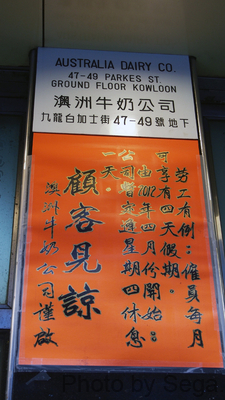 AUSTRALIA DAIRY CO.
47-49 PARKES ST.
GROUND FLOOR KOWLOON
澳洲牛奶公司
九龍白加士街47-49號地下
勞工有例:僱員每月
可享有四天假期。
由2012年四月份開始:
公司暫定逢星期四休息
一天。
顧客見諒
澳洲牛奶公司謹啟
Photo by Sega